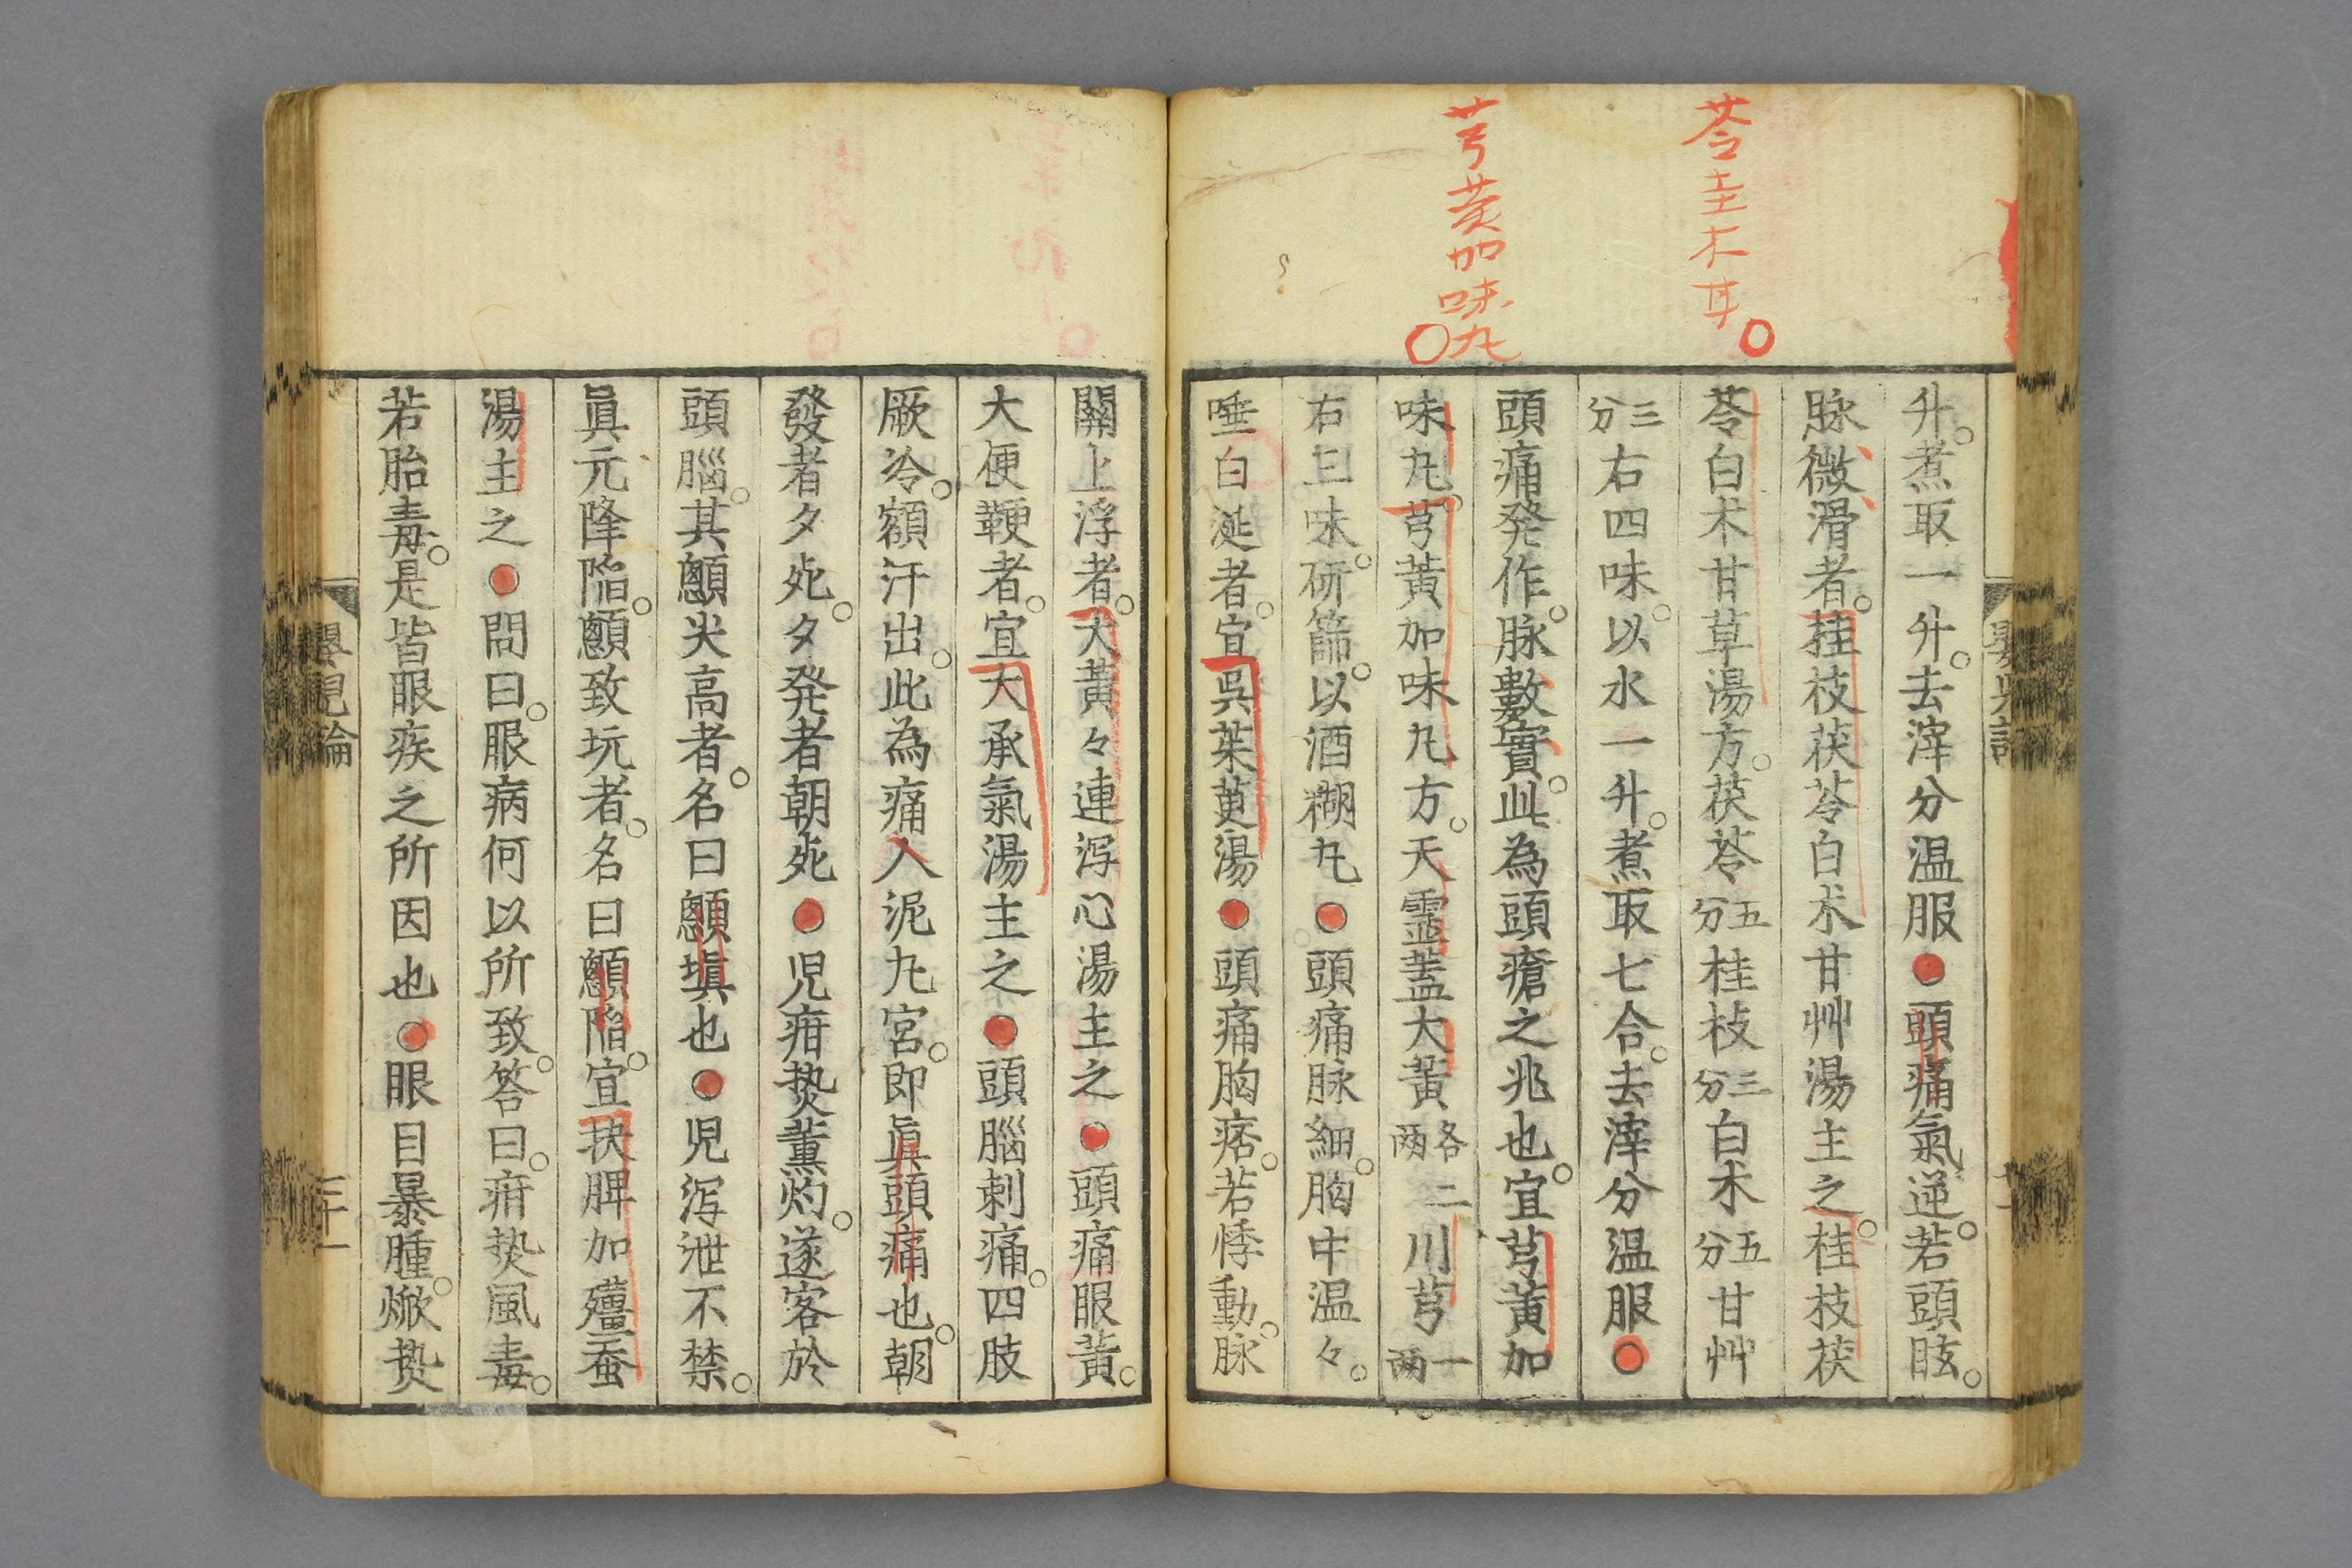 苓圭朮甘○
芎黄加味丸○
升。煮取一升。去滓分温服●頭痛氣逆。若頭眩。
脉微滑者。桂枝茯苓白朮甘艸湯主之。桂枝茯
苓白朮甘草湯方。茯苓五分桂枝三分白朮五分甘艸
三分右四味。以水一升。煮取七合。去滓分温服●
頭痛発作。脉數實。此為頭瘡之兆也。宜芎黄加
味丸。芎黄加味丸方。天靈蓋大黄各二両川芎一両
右三味。研篩。以酒糊丸●頭痛脉細。胸中温々。
唾白涎者。宜呉茱萸湯●頭痛胸痞。若悸動。脉
關上浮者。大黄々連瀉心湯主之●頭痛眼黄。
大便鞕者。宜大承氣湯主之●頭腦刺痛。四肢
厥冷。額汗出。此為痛入泥丸宮。即眞頭痛也。朝
發者夕死。夕発者朝死●児疳熱薫灼。遂客於
頭腦。其顖尖高者。名曰顖塡也●児瀉泄不禁。
眞元降陷。顖致坑者。名曰顖陷。宜抉脾加殭蚕
湯主之●問曰。眼病何以所致。答曰。疳熱風毒。
若胎毒。是皆眼疾之所因也●眼目暴腫。焮熱
三十一